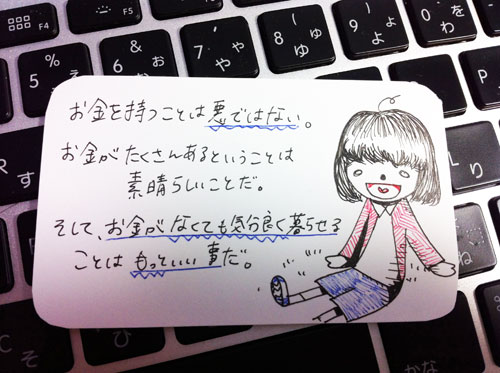 お金を持つことは悪ではない。
お金がたくさんあるということは
素晴らしいことだ。
そして、お金がなくても気分良く暮らせる
ことはもっといい事だ。
F4
F5
%
5
え
&
6
お
'
7
や
(
8
ゆ
)
9
よ
を
0
わ
R
す
L
り
C
そ
かな